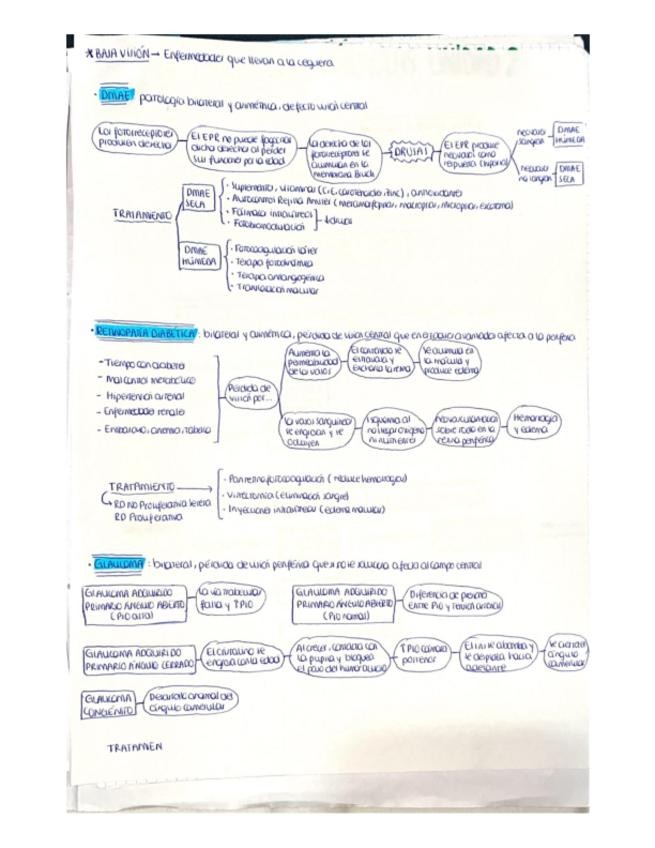 * BAJA VISIÓN → Enfermedades que llevan a la ceguera
· DMAE patología bilateral y asimétrica, defecto visual central
Los fotorreceptores producen desecho
El EPR no puede fagocitar dicho desecho al perder sus funciones por la edad
Los desechos de los fotorreceptores se acumulan en la membrana Bruch
DRUSAS
El EPR produce neovasos como respuesta
neovasos sangran
DMAE HÚMEDA
neovasos no sangran
DMAE SECA
TRATAMIENTO
DMAE SECA
· Suplemento, vitaminas (C, E, carotenoides, Zinc), antioxidantes
· Autocontrol Rejilla Amsler (metamorfopsias, macropsias, micropsias, escotoma)
· Fármacos intravítreos
· Fotobiomodulación
↓ drusas
DMAE HÚMEDA
· Fotocoagulación láser
· Terapia fotodinámica
· Terapia antiangiogénica
· Translocación macular
· RETINOPATÍA DIABÉTICA: bilateral y asimétrica, pérdida de visión central que en estadios avanzados afecta a la periferia
- Tiempo con diabetes
- Mal control metabólico
- Hipertensión arterial
- Enfermedades renales
- Embarazo, anemia, tabaco
Pérdida de visión por...
Aumenta la permeabilidad de los vasos
El contenido se extravasa y encharca la retina
Se acumula en la mácula y produce edema
Los vasos sanguíneos se engrosan y se ocluyen
Isquemia al no llegar oxígeno ni alimento
Neovascularización sobre todo en la retina periférica
Hemorragia y edema
TRATAMIENTO →
RD NO Proliferativa severa
RD Proliferativa
· Panretinofotocoagulación (reduce hemorragias)
· Vitrectomía (eliminación sangre)
· Inyecciones intravítreas (edema macular)
· GLAUCOMA: bilateral, pérdida de visión periférica que si no se soluciona afecta al campo central
GLAUCOMA ADQUIRIDO PRIMARIO ÁNGULO ABIERTO (PIO alta)
La vía trabecular falla y ↑PIO
GLAUCOMA ADQUIRIDO PRIMARIO ÁNGULO ABIERTO (PIO normal)
Diferencia de presión entre PIO y tensión arterial
GLAUCOMA ADQUIRIDO PRIMARIO ÁNGULO CERRADO
El cristalino se engrosa con la edad
Al crecer, contacta con la pupila y bloquea el paso del humor acuoso
↑PIO cámara posterior
El iris se abomba y se desplaza hacia adelante
Se cierra el ángulo camerular
GLAUCOMA CONGÉNITO
Desarrollo anormal del ángulo camerular
TRATAMIEN